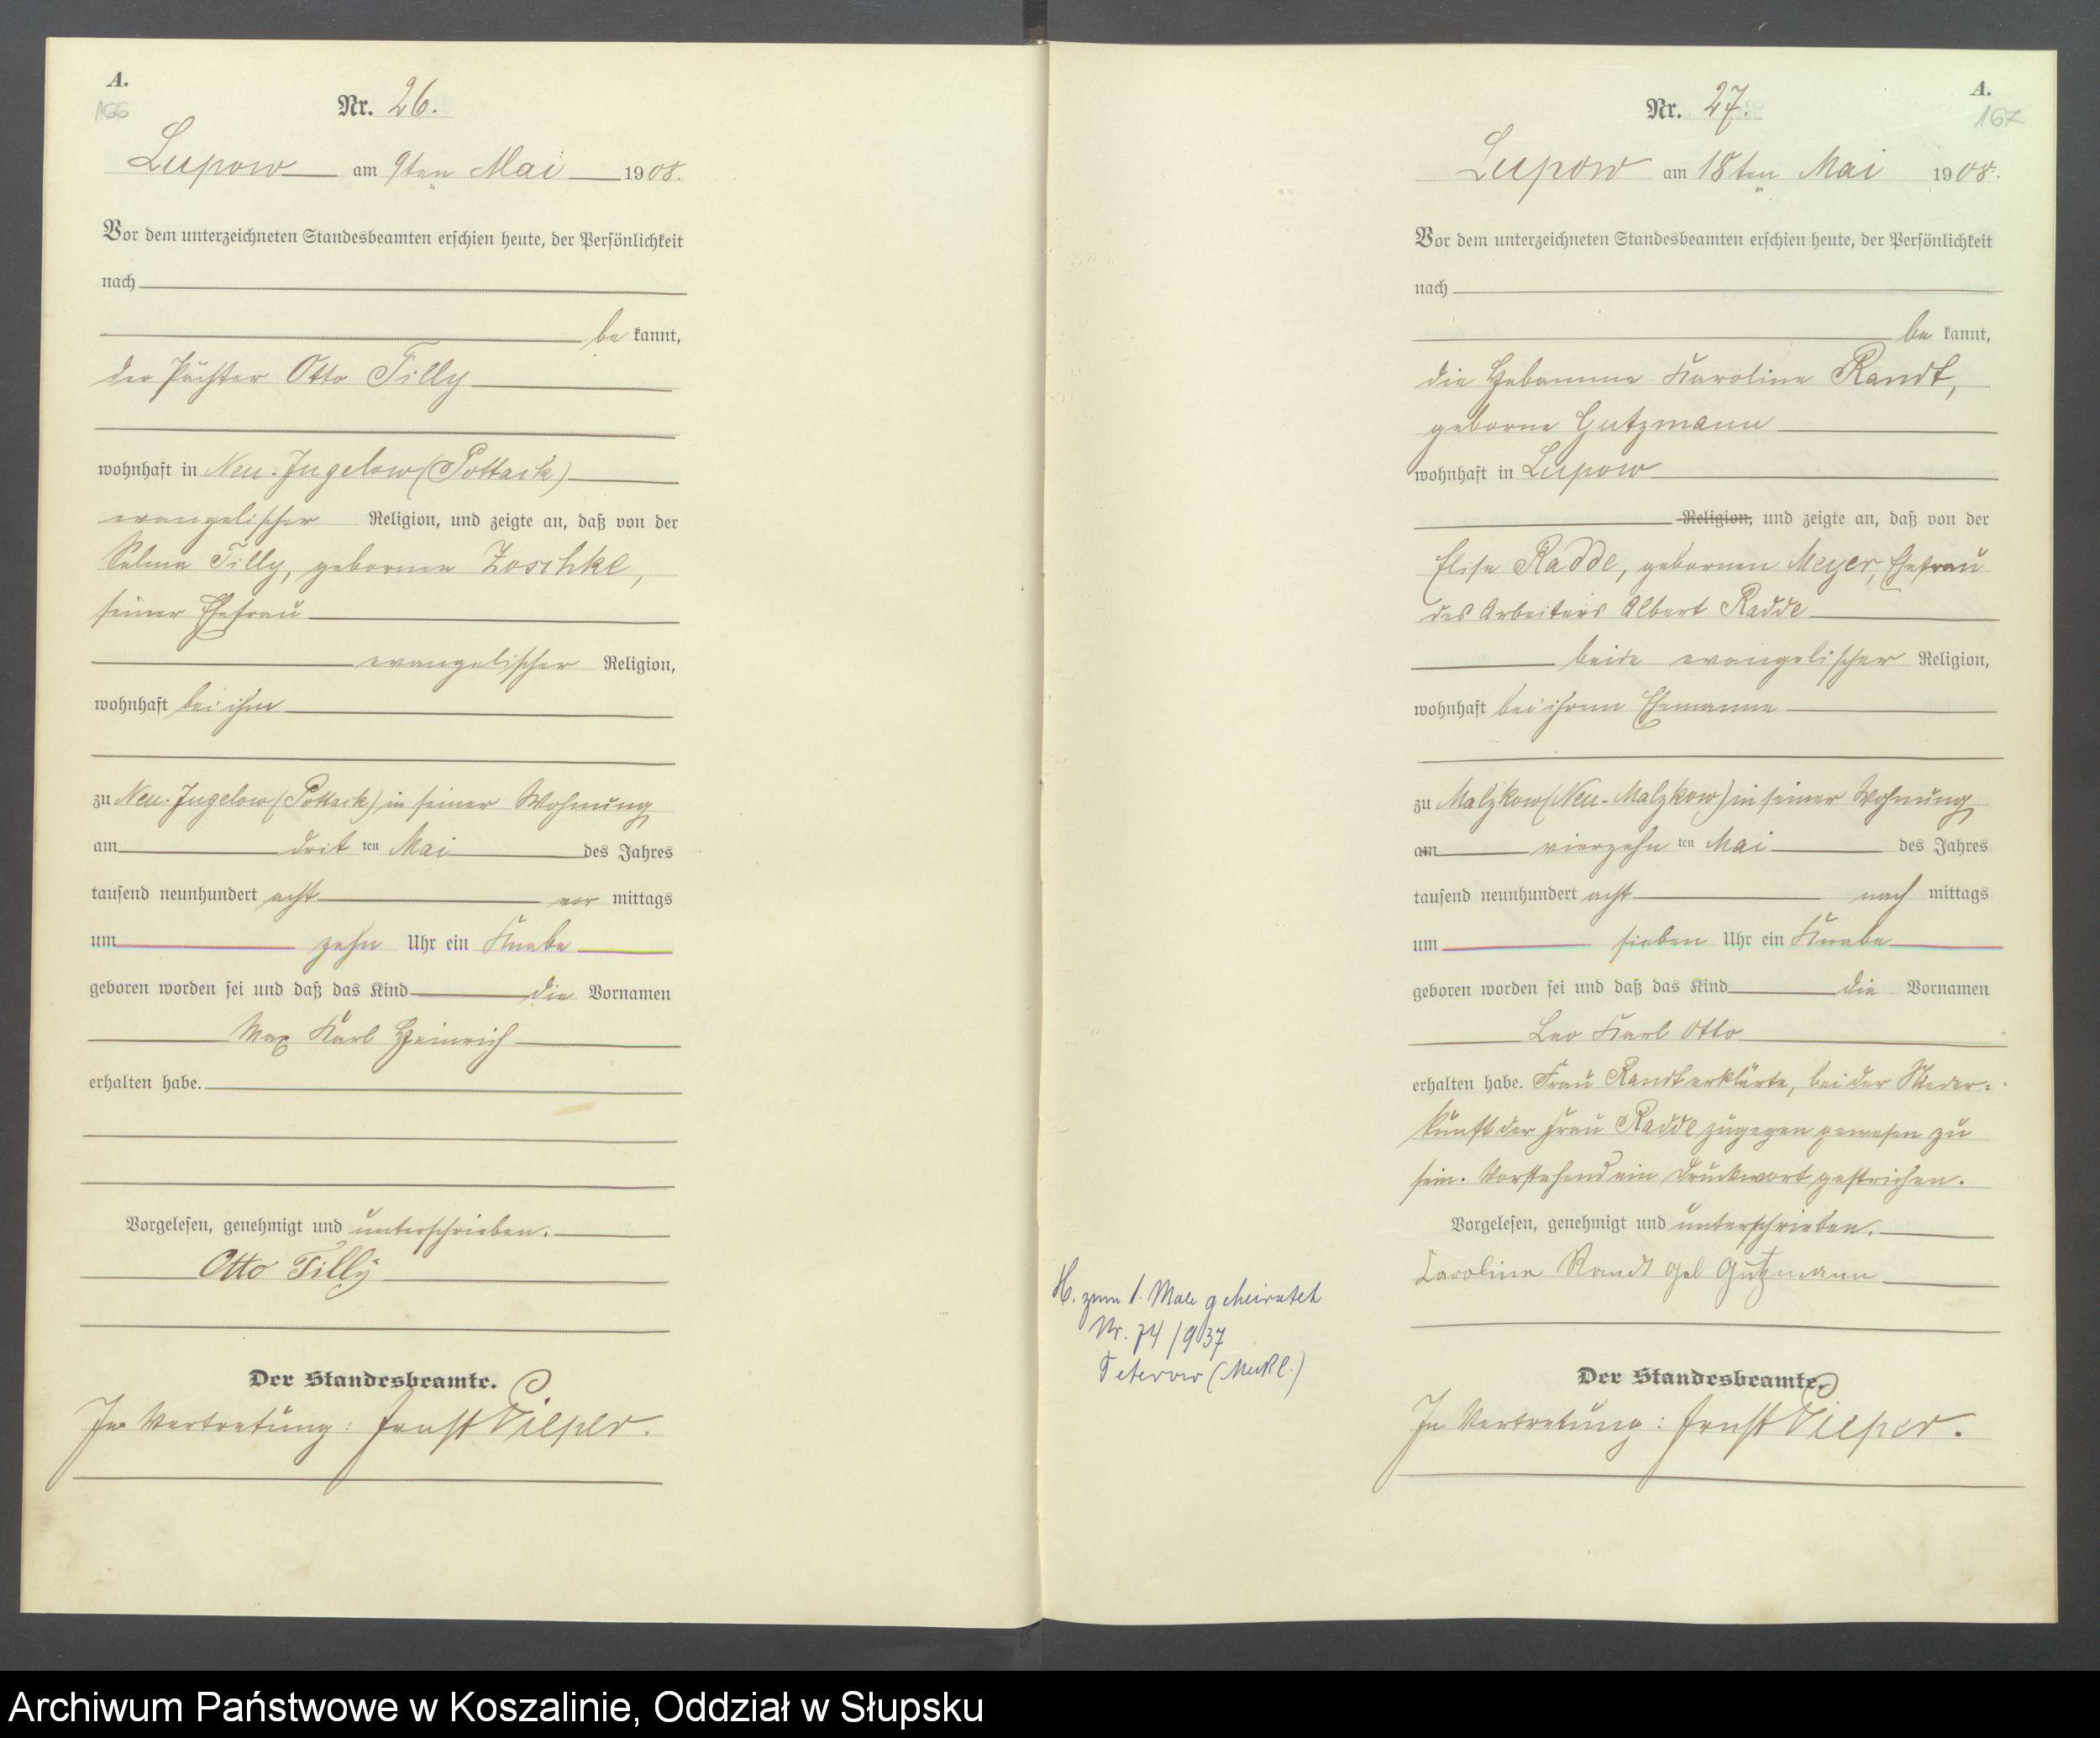 A.
166
Nr. 26.
Lupow am 9ten Mai 1908.
Vor dem unterzeichneten Standesbeamten erschien heute, der Persönlichkeit
nach
be kannt,
der Pächter Otto Tilly
wohnhaft in Neu-Jugelow (Pottack)
evangelischer Religion, und zeigte an, daß von der
Selma Tilly, geborenen Zoschke,
seiner Ehefrau
evangelischer Religion,
wohnhaft bei ihm
zu Neu-Jugelow (Pottack) in seiner Wohnung
am drit ten Mai des Jahres
tausend neunhundert acht vor mittags
um zehn Uhr ein Knabe
geboren worden sei und daß das Kind die Vornamen
Max Karl Heinrich
erhalten habe.
Vorgelesen, genehmigt und unterschrieben.
Otto Tilly
Der Standesbeamte.
In Vertretung: Ernst Pieper.
A.
167
Nr. 27.
Lupow am 18ten Mai 1908.
Vor dem unterzeichneten Standesbeamten erschien heute, der Persönlichkeit
nach
be kannt,
die Hebamme Karoline Randt,
geborne Gutzmann
wohnhaft in Lupow
Religion, und zeigte an, daß von der
Elise Radde, gebornen Meyer, Ehefrau
des Arbeiters Albert Radde
beide evangelischer Religion,
wohnhaft bei ihrem Ehemanne
zu Malzkow (Neu-Malzkow) in seiner Wohnung
am vierzehn ten Mai des Jahres
tausend neunhundert acht nach mittags
um sieben Uhr ein Knabe
geboren worden sei und daß das Kind die Vornamen
Leo Karl Otto
erhalten habe. Frau Randt erklärte, bei der Nieder=
kunft der Frau Radde zugegen gewesen zu
sein. Vorstehend ein Druckwort gestrichen.
Vorgelesen, genehmigt und unterschrieben.
Caroline Randt geb Gutzmann
Der Standesbeamte.
In Vertretung: Ernst Pieper.
H. zum 1. Male geheiratet
Nr. 74/937
Teterow (Meckl.)
Archiwum Państwowe w Koszalinie, Oddział w Słupsku